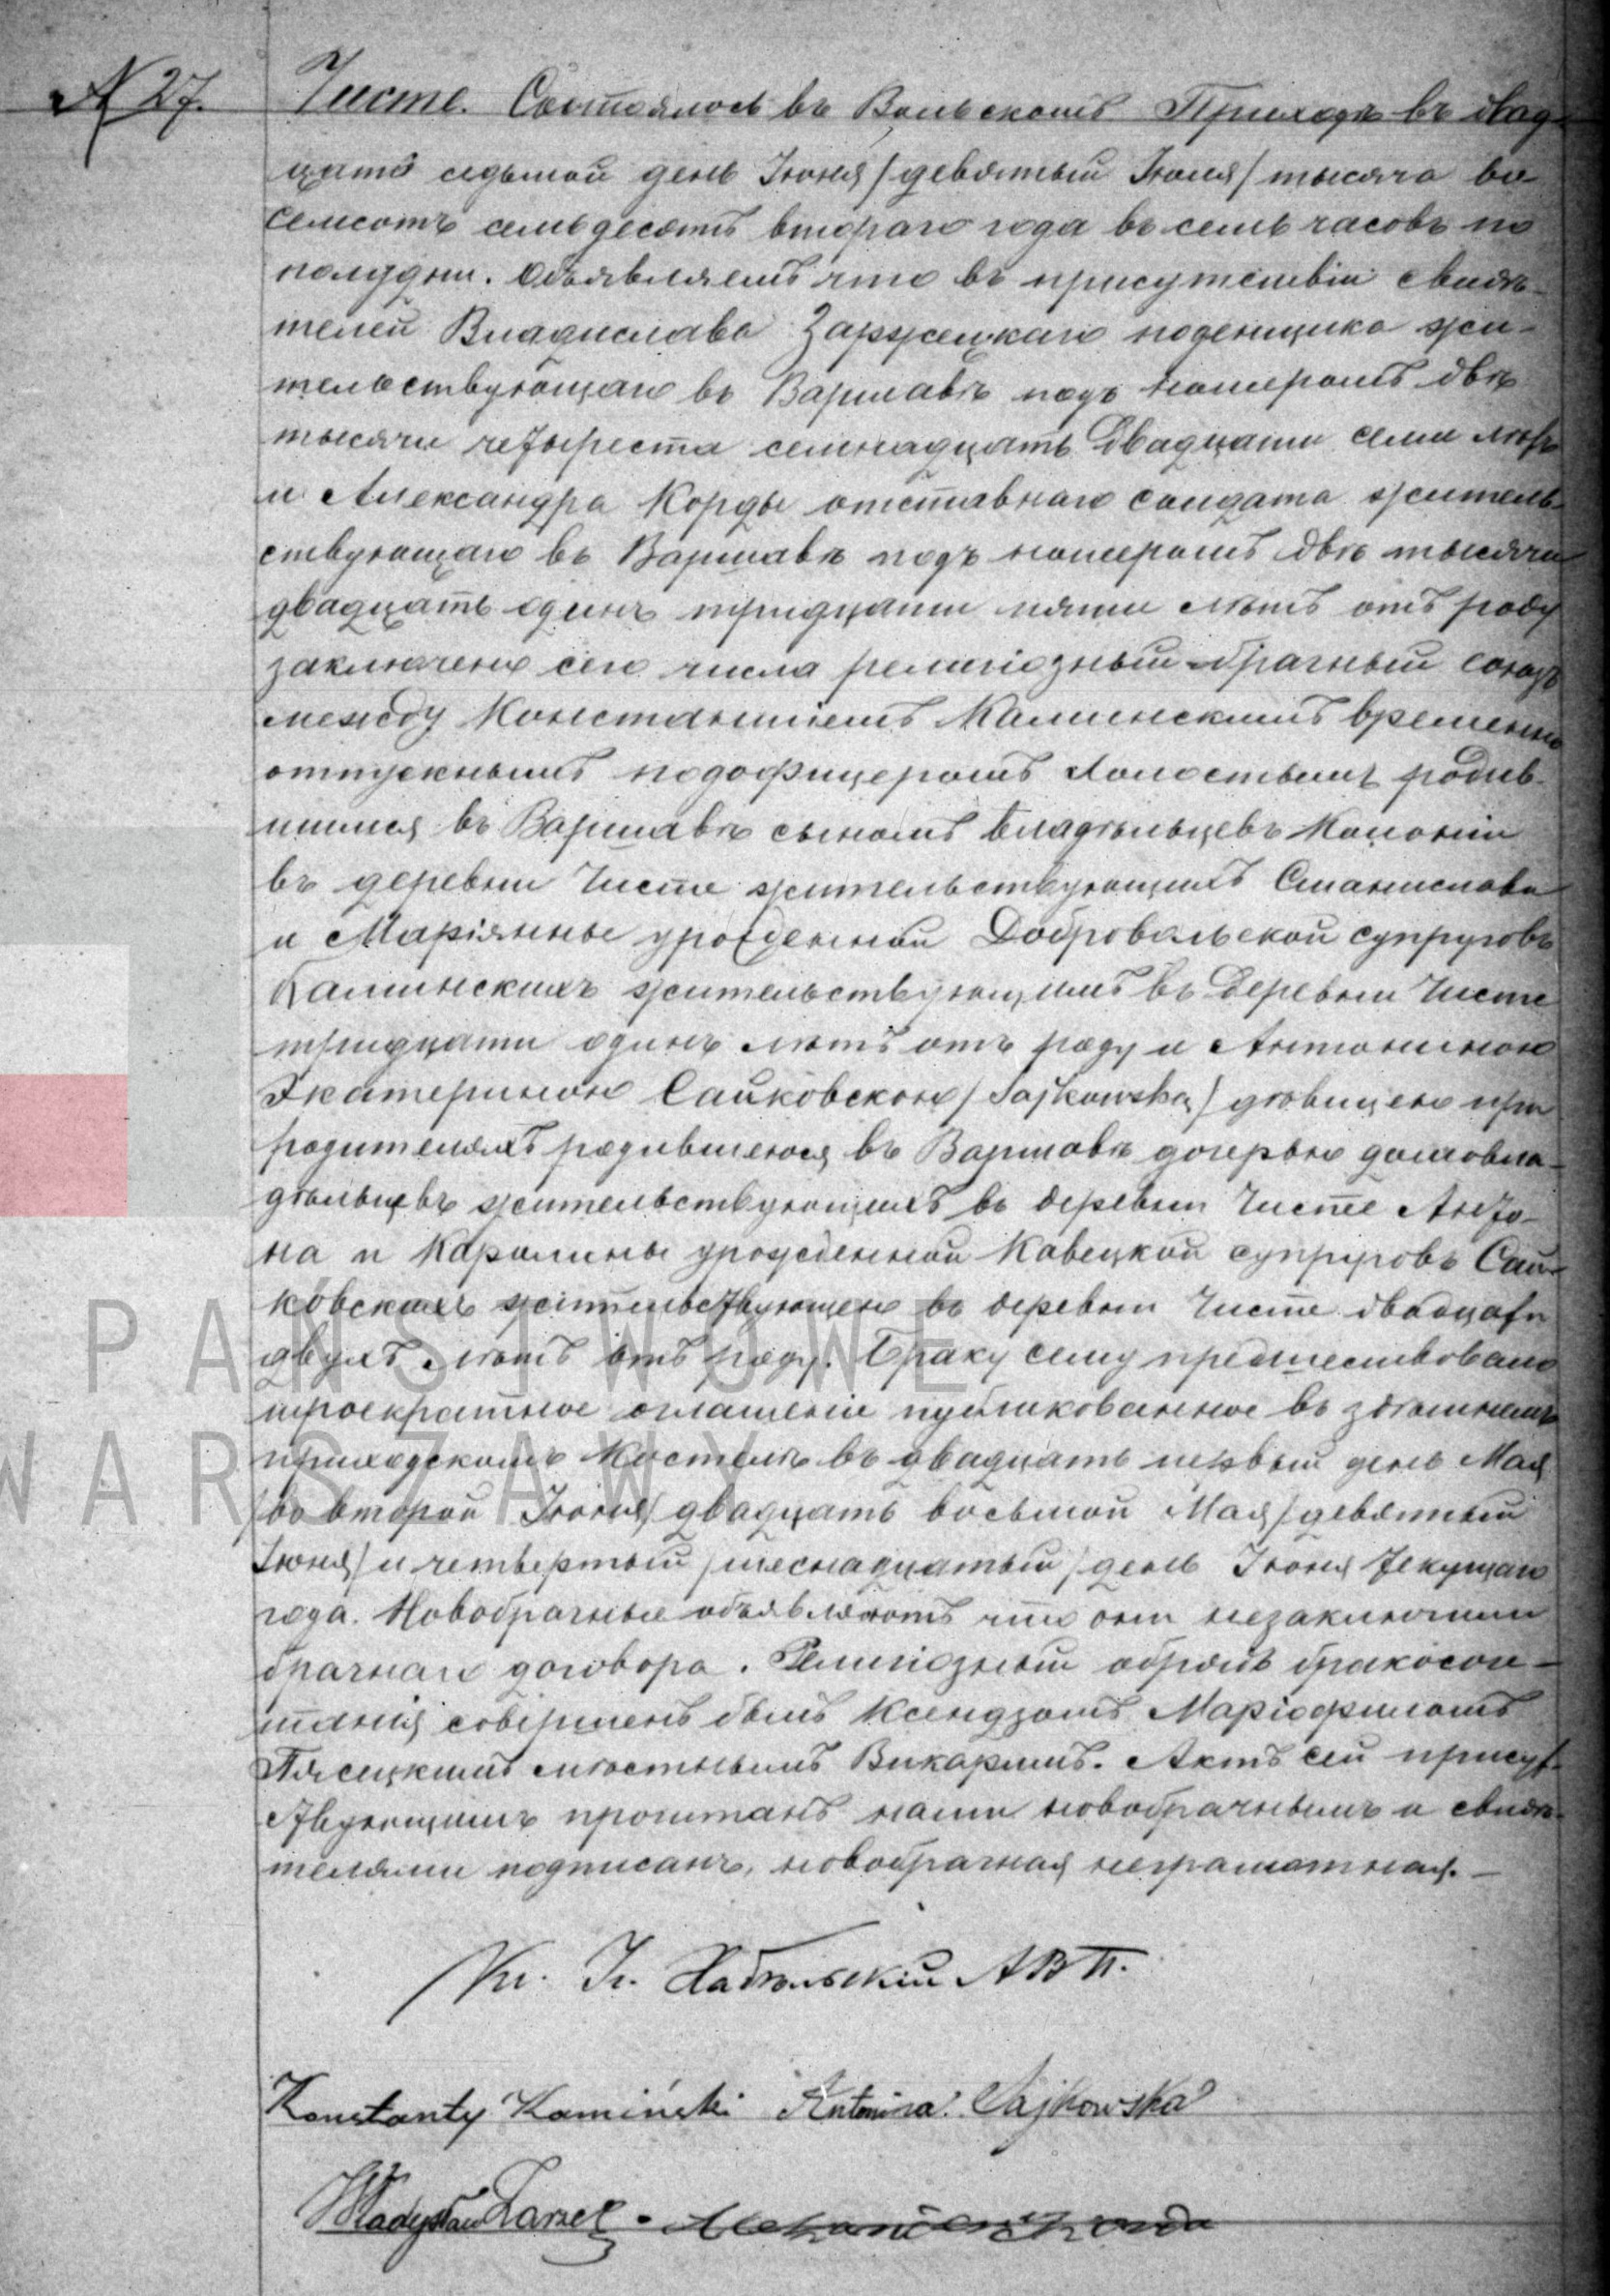 № 27.
Чисте. Состоялось въ Вольскомъ Приходѣ въ двад-
цать седьмой день Іюня /девятый Іюля/ тысяча во-
семсотъ семьдесятъ втораго года въ семь часовъ по
полудни. Объявляемъ что въ присутствіи свидѣ-
телей Владислава Заржецкаго поденщика жи-
тельствующаго въ Варшавѣ подъ номеромъ двѣ
тысячи четыреста семнадцать двадцати семи лѣтъ
и Александра Корды отставнаго солдата житель-
ствующаго въ Варшавѣ подъ номеромъ двѣ тысячи
двадцать одинъ тридцати пяти лѣтъ отъ роду
заключенъ сего числа религіозный брачный союзъ
между Константіемъ Каминскимъ временно
отпускнымъ подофицеромъ холостымъ родив-
шимся въ Варшавѣ сыномъ владѣльцевъ Колоніи
въ деревни Чисте жительствующихъ Станислава
и Маріянны урожденной Добровольской супруговъ
Каминскихъ жительствующимъ въ деревни Чисте
тридцати одинъ лѣтъ отъ роду и Антониною
Екатериною Сайковскою /Sajkowska/ дѣвицею при
родителяхъ родившеюся въ Варшавѣ дочерью домовла-
дѣльцевъ жительствующихъ въ деревни Чисте Анто-
на и Каролины урожденной Кавецкой супруговъ Сай-
ковскихъ жительствующею въ деревни Чисте двадцати
двухъ лѣтъ отъ роду. Браку сему предшествовало
троекратное оглашеніе публикованное въ здѣшнемъ
приходскомъ Костелѣ въ двадцать первый день Мая
/во второй Іюня/ двадцать восьмой Мая /девятый
Іюня/ и четвертый /шеснадцатый/ день Іюня текущаго
года. Новобрачные объявляютъ что они незаключили
брачнаго договора. Религіозный обрядъ бракосоче-
танія совершенъ былъ Ксендзомъ Маріофиломъ
Пясецкимъ мѣстнымъ Викаримъ. Актъ сей присут-
ствующимъ прочитанъ нами новобрачнымъ и свидѣ-
телями подписанъ, новобрачная неграмотная.—
Кс. А В П.
Konstanty Kamiński Antonina Sajkowska
Władysław
PAŃSTWOWE
WARSZAWY